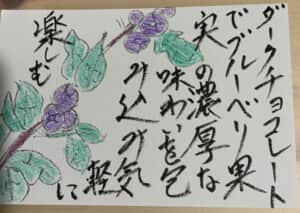 ダークチョコレート
でブルーベリ果
実の濃厚な
味わいを包
み込み気
軽に
楽しむ